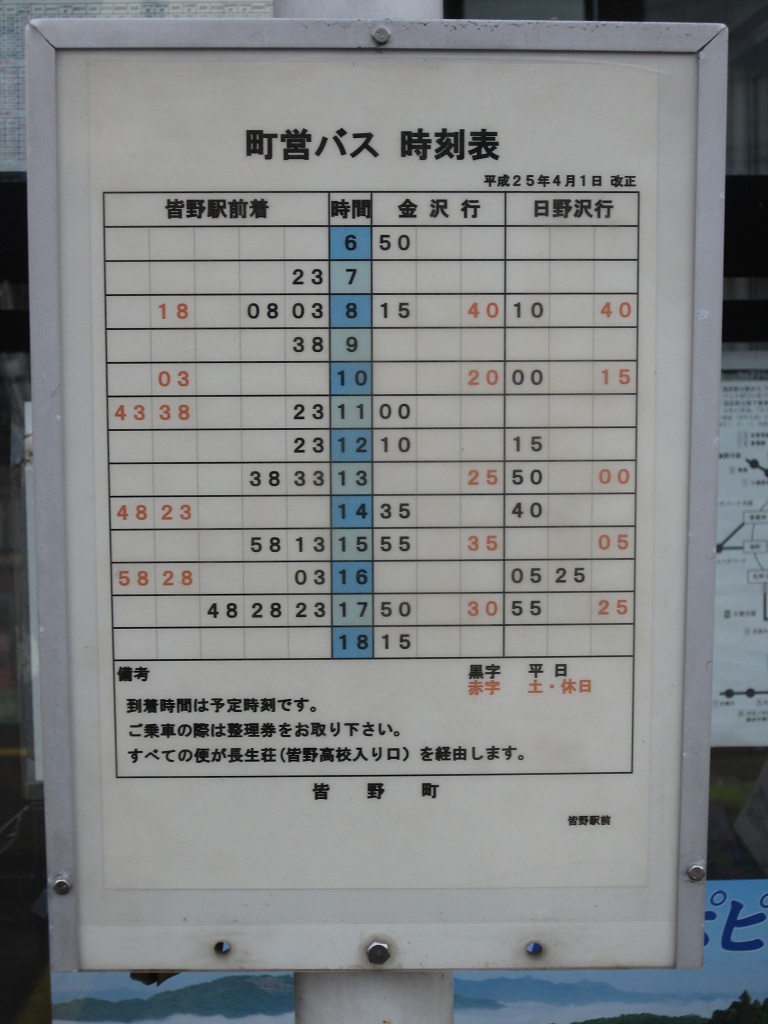 町営バス 時刻表
平成25年4月1日 改正
皆野駅前着 時間 金沢行 日野沢行
6 50
23 7
18 08 03 8 15 40 10 40
38 9
03 10 20 00 15
43 38 23 11 00
23 12 10 15
38 33 13 25 50 00
48 23 14 35 40
58 13 15 55 35 05
58 28 03 16 05 25
48 28 23 17 50 30 55 25
18 15
備考 黒字 平日
赤字 土・休日
到着時間は予定時刻です。
ご乗車の際は整理券をお取り下さい。
すべての便が長生荘(皆野高校入り口) を経由します。
皆 野 町
皆野駅前
ピ